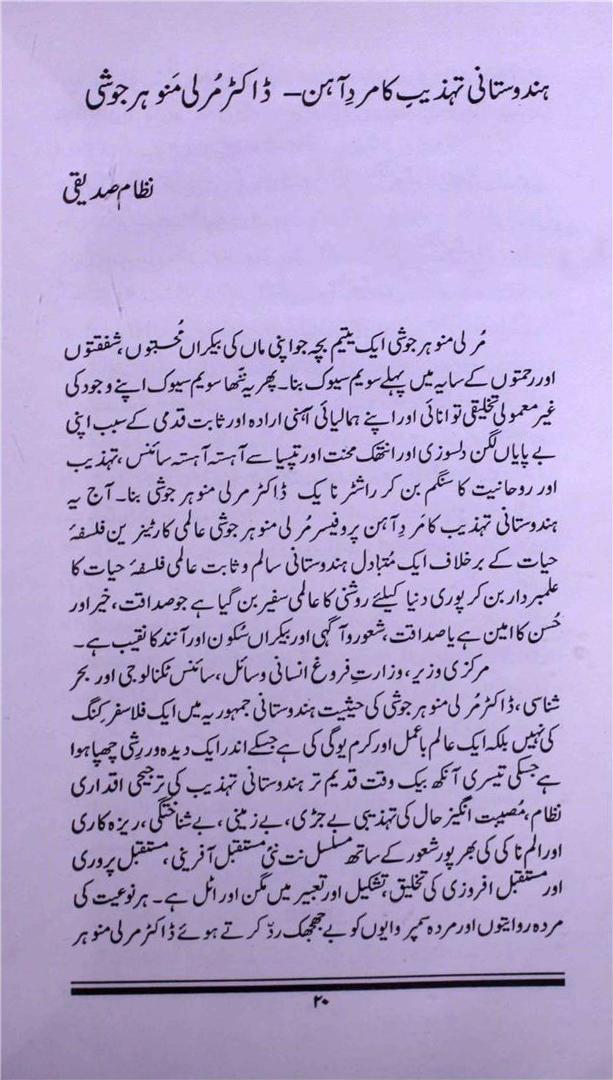 ہندوستانی تہذیب کا مردِ آہن – ڈاکٹر مُرلی مَنوہر جوشی
نظام صدیقی
مُرلی منوہر جوشی ایک یتیم بچہ جو اپنی ماں کی بیکراں مُحبتوں، شفقتوں
اور رحمتوں کے سایہ میں پہلے سویم سیوک بنا۔ پھر یہ ننّھا سویم سیوک اپنے وجود کی
غیر معمولی تخلیقی توانائی اور اپنے ہمالیائی آہنی ارادہ اور ثابت قدمی کے سبب اپنی
بے پایاں لگن دلسوزی اور انتھک محنت اور تپسیا سے آہستہ آہستہ سائنس، تہذیب
اور روحانیت کا سنگم بن کر راشٹر نایک ڈاکٹر مرلی منوہر جوشی بنا۔ آج یہ
ہندوستانی تہذیب کا مَردِ آہن پروفیسر مُرلی منوہر جوشی عالمی کارٹیزین فلسفۂ
حیات کے برخلاف ایک مُتبادل ہندوستانی سالم و ثابت عالمی فلسفۂ حیات کا
علمبردار بن کر پوری دنیا کیلئے روشنی کا عالمی سفیر بن گیا ہے جو صداقت، خیر اور
حُسن کا امین ہے یا صداقت، شعور و آگہی اور بیکراں سُکون اور آنند کا نقیب ہے۔
مرکزی وزیر، وزارتِ فروغ انسانی وسائل، سائنس ٹکنالوجی اور بحر
شناسی، ڈاکٹر مُرلی منوہر جوشی کی حیثیت ہندوستانی جمہوریہ میں ایک فلاسفر کِنگ
کی نہیں بلکہ ایک عالم باعمل اور کرم یوگی کی ہے جسکے اندر ایک دیدہ ور رِشی چھپا ہوا
ہے جسکی تیسری آنکھ بیک وقت قدیم تر ہندوستانی تہذیب کی ترجیحی اقداری
نظام، مُصیبت انگیز حال کی تہذیبی بے جڑی، بے زمینی، بے شناختگی، ریزہ کاری
اور الم ناکی کی بھرپور شعور کے ساتھ مسلسل نت نئی مستقبل آفرینی، مستقبل پروری
اور مستقبل افروزی کی تخلیق، تشکیل اور تعبیر میں مگن اور اٹل ہے۔ ہر نوعیت کی
مردہ روایتوں اور مردہ سمپروایوں کو بے جھجھک ردّ کرتے ہوئے ڈاکٹر مرلی منوہر
۲۰